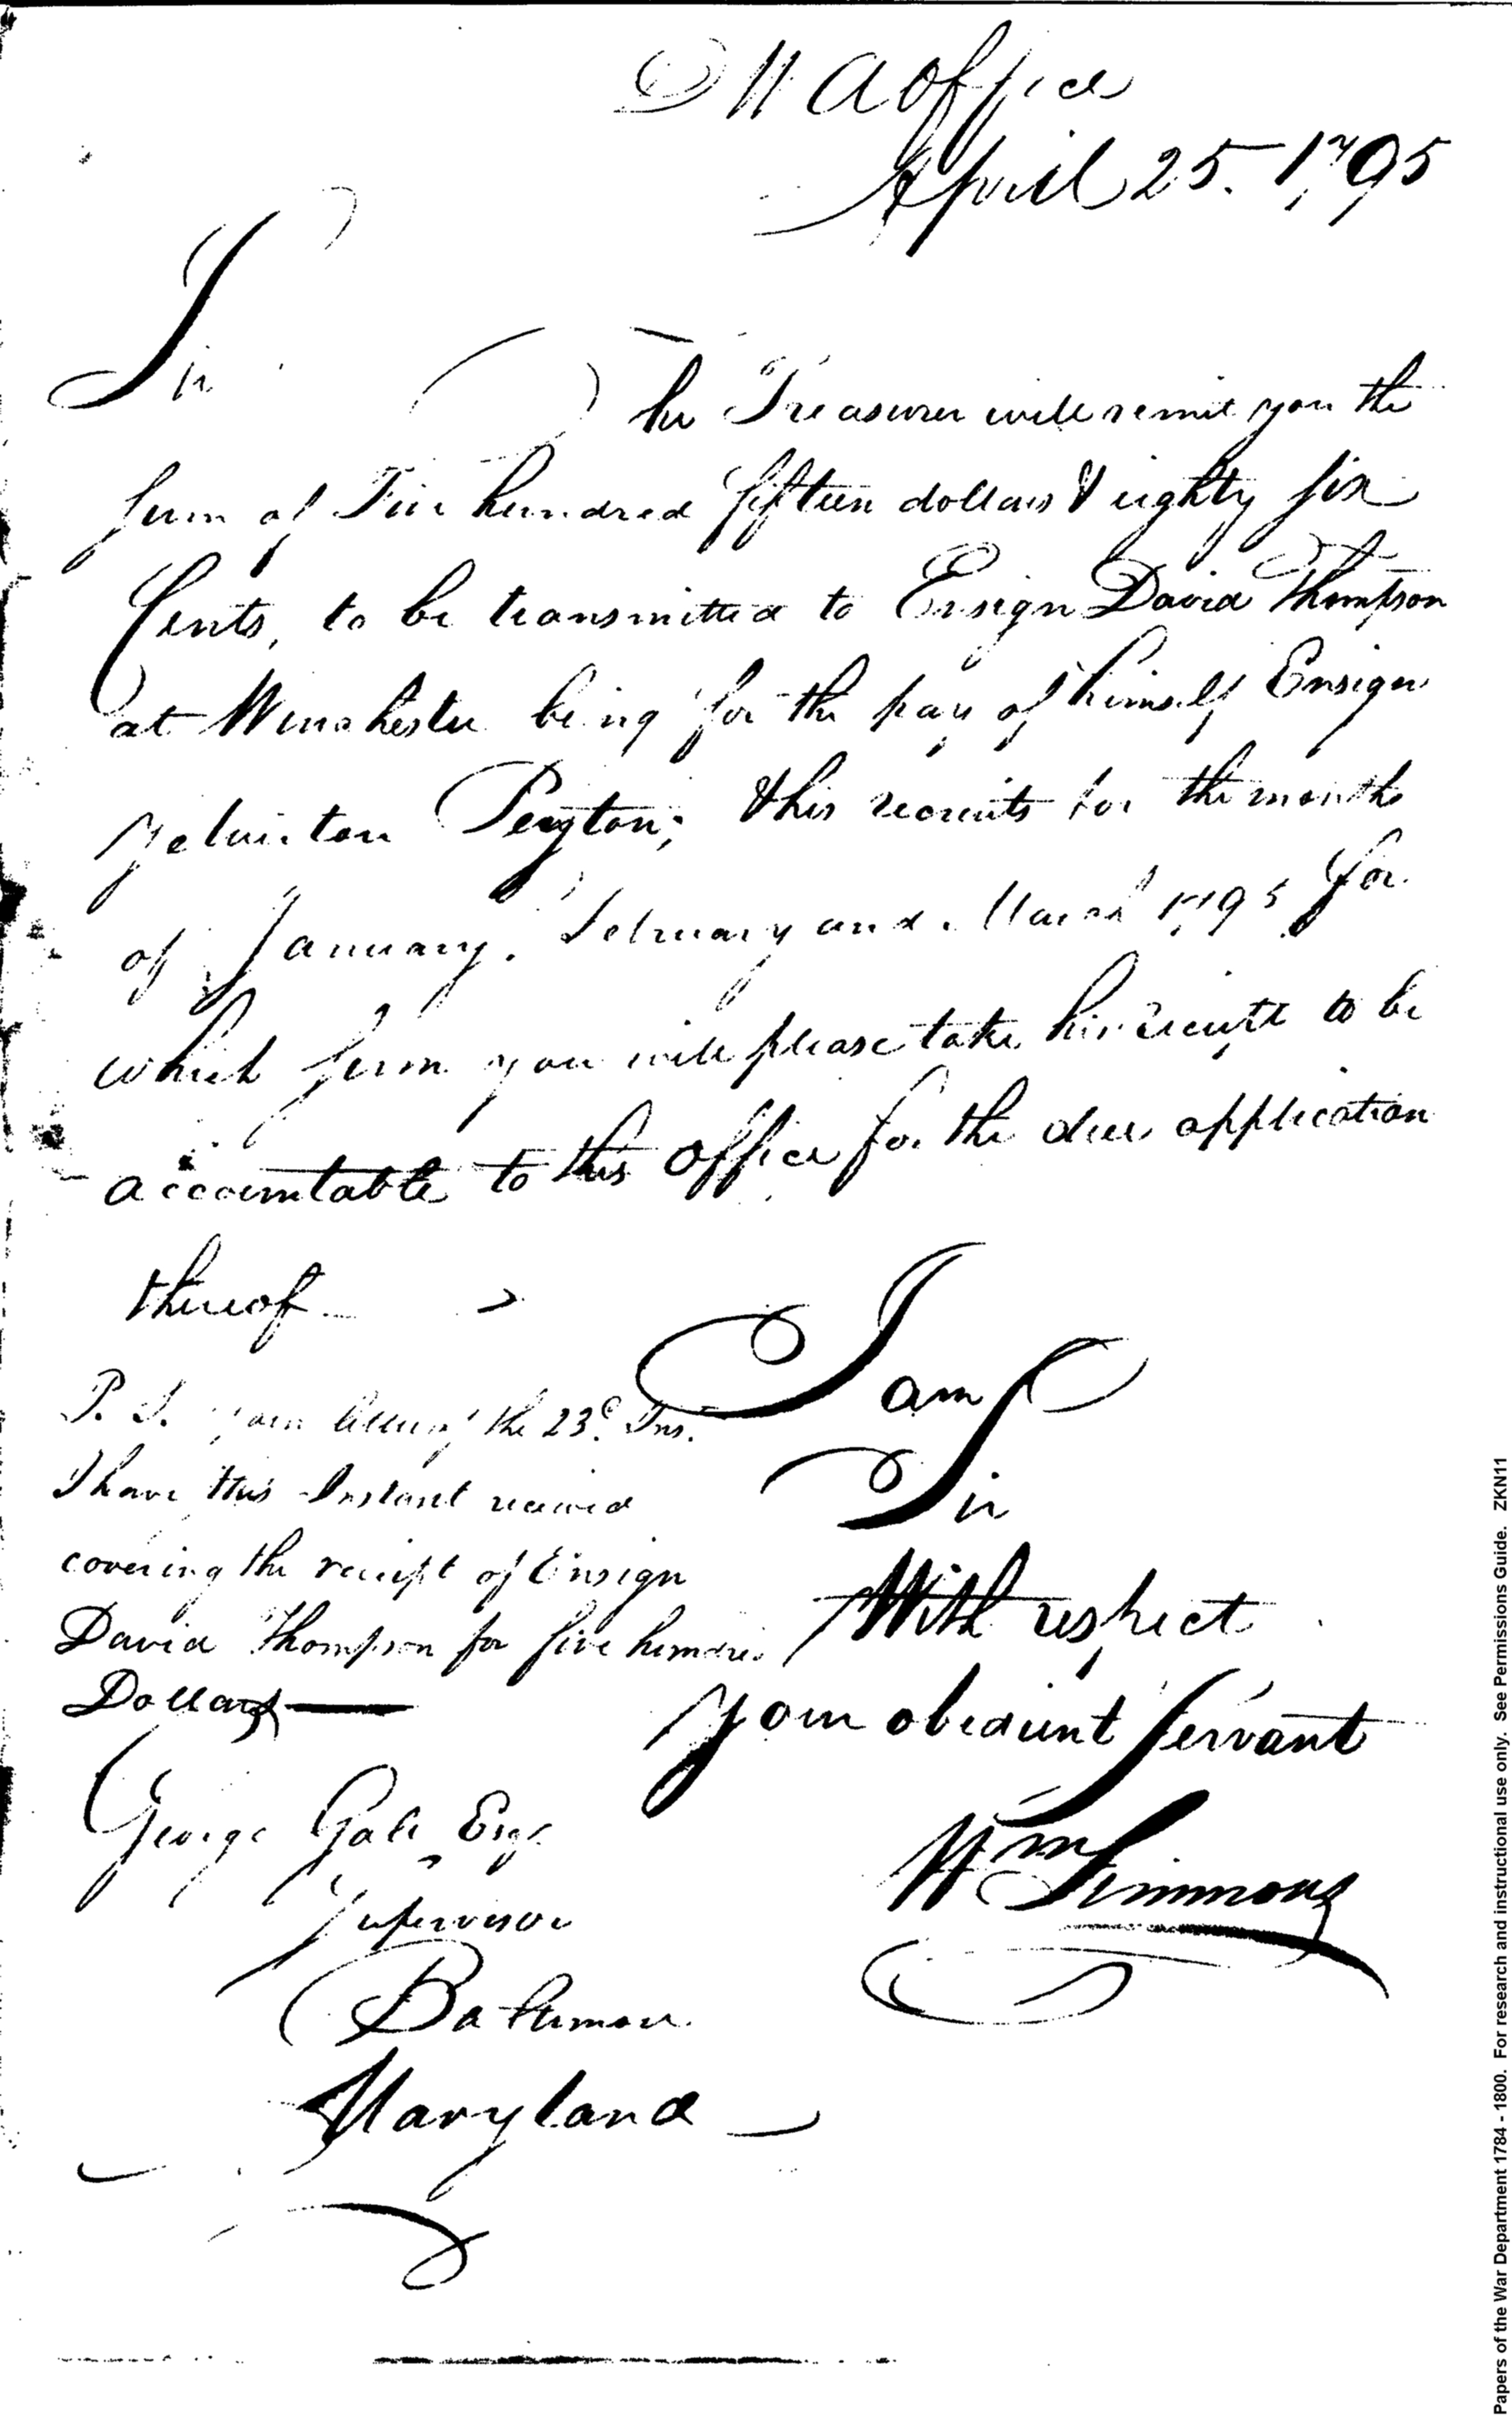 D W A Office
April 25. 1795
Sir
The Treasurer will remit you the
sum of Five hundred fifteen dollars & eighty six
Cents, to be transmitted to Ensign David Thompson
at Winchester being for the pay of himself Ensign
Yelverton Peyton; & his recruits for the months
of January, February and March 1795 for
which sum you will please take his receipt to be
accountable to this office for the due application
thereof
I am
Sir
With respect
Your obedient Servant
Wm Simmons
P. S. Your letter of the 23d. Ins.
I have this Instant received
covering the receipt of Ensign
David Thompson for five hundred
Dollars
George Gale Esqr
Supervisor
Baltimore
Maryland
Papers of the War Department 1784 - 1800. For research and instructional use only. See Permissions Guide. ZKN11